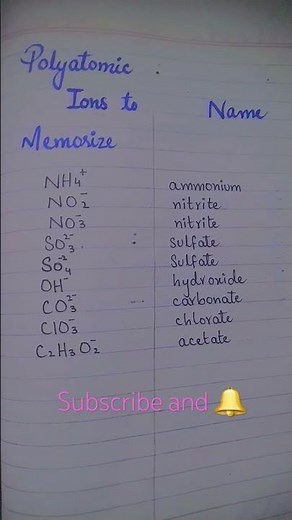 Polyatomic :
Ions to Name
Memorize
NH₄⁺ ammonium
NO₂⁻ nitrite
NO₃⁻ nitrite
SO₃²⁻ : sulfate
SO₄⁻² Sulfate
OH⁻ hydroxide
CO₃²⁻ -- carbonate
ClO₃⁻ chlorate
C₂H₃O₂⁻ acetate
Subscribe and 🔔